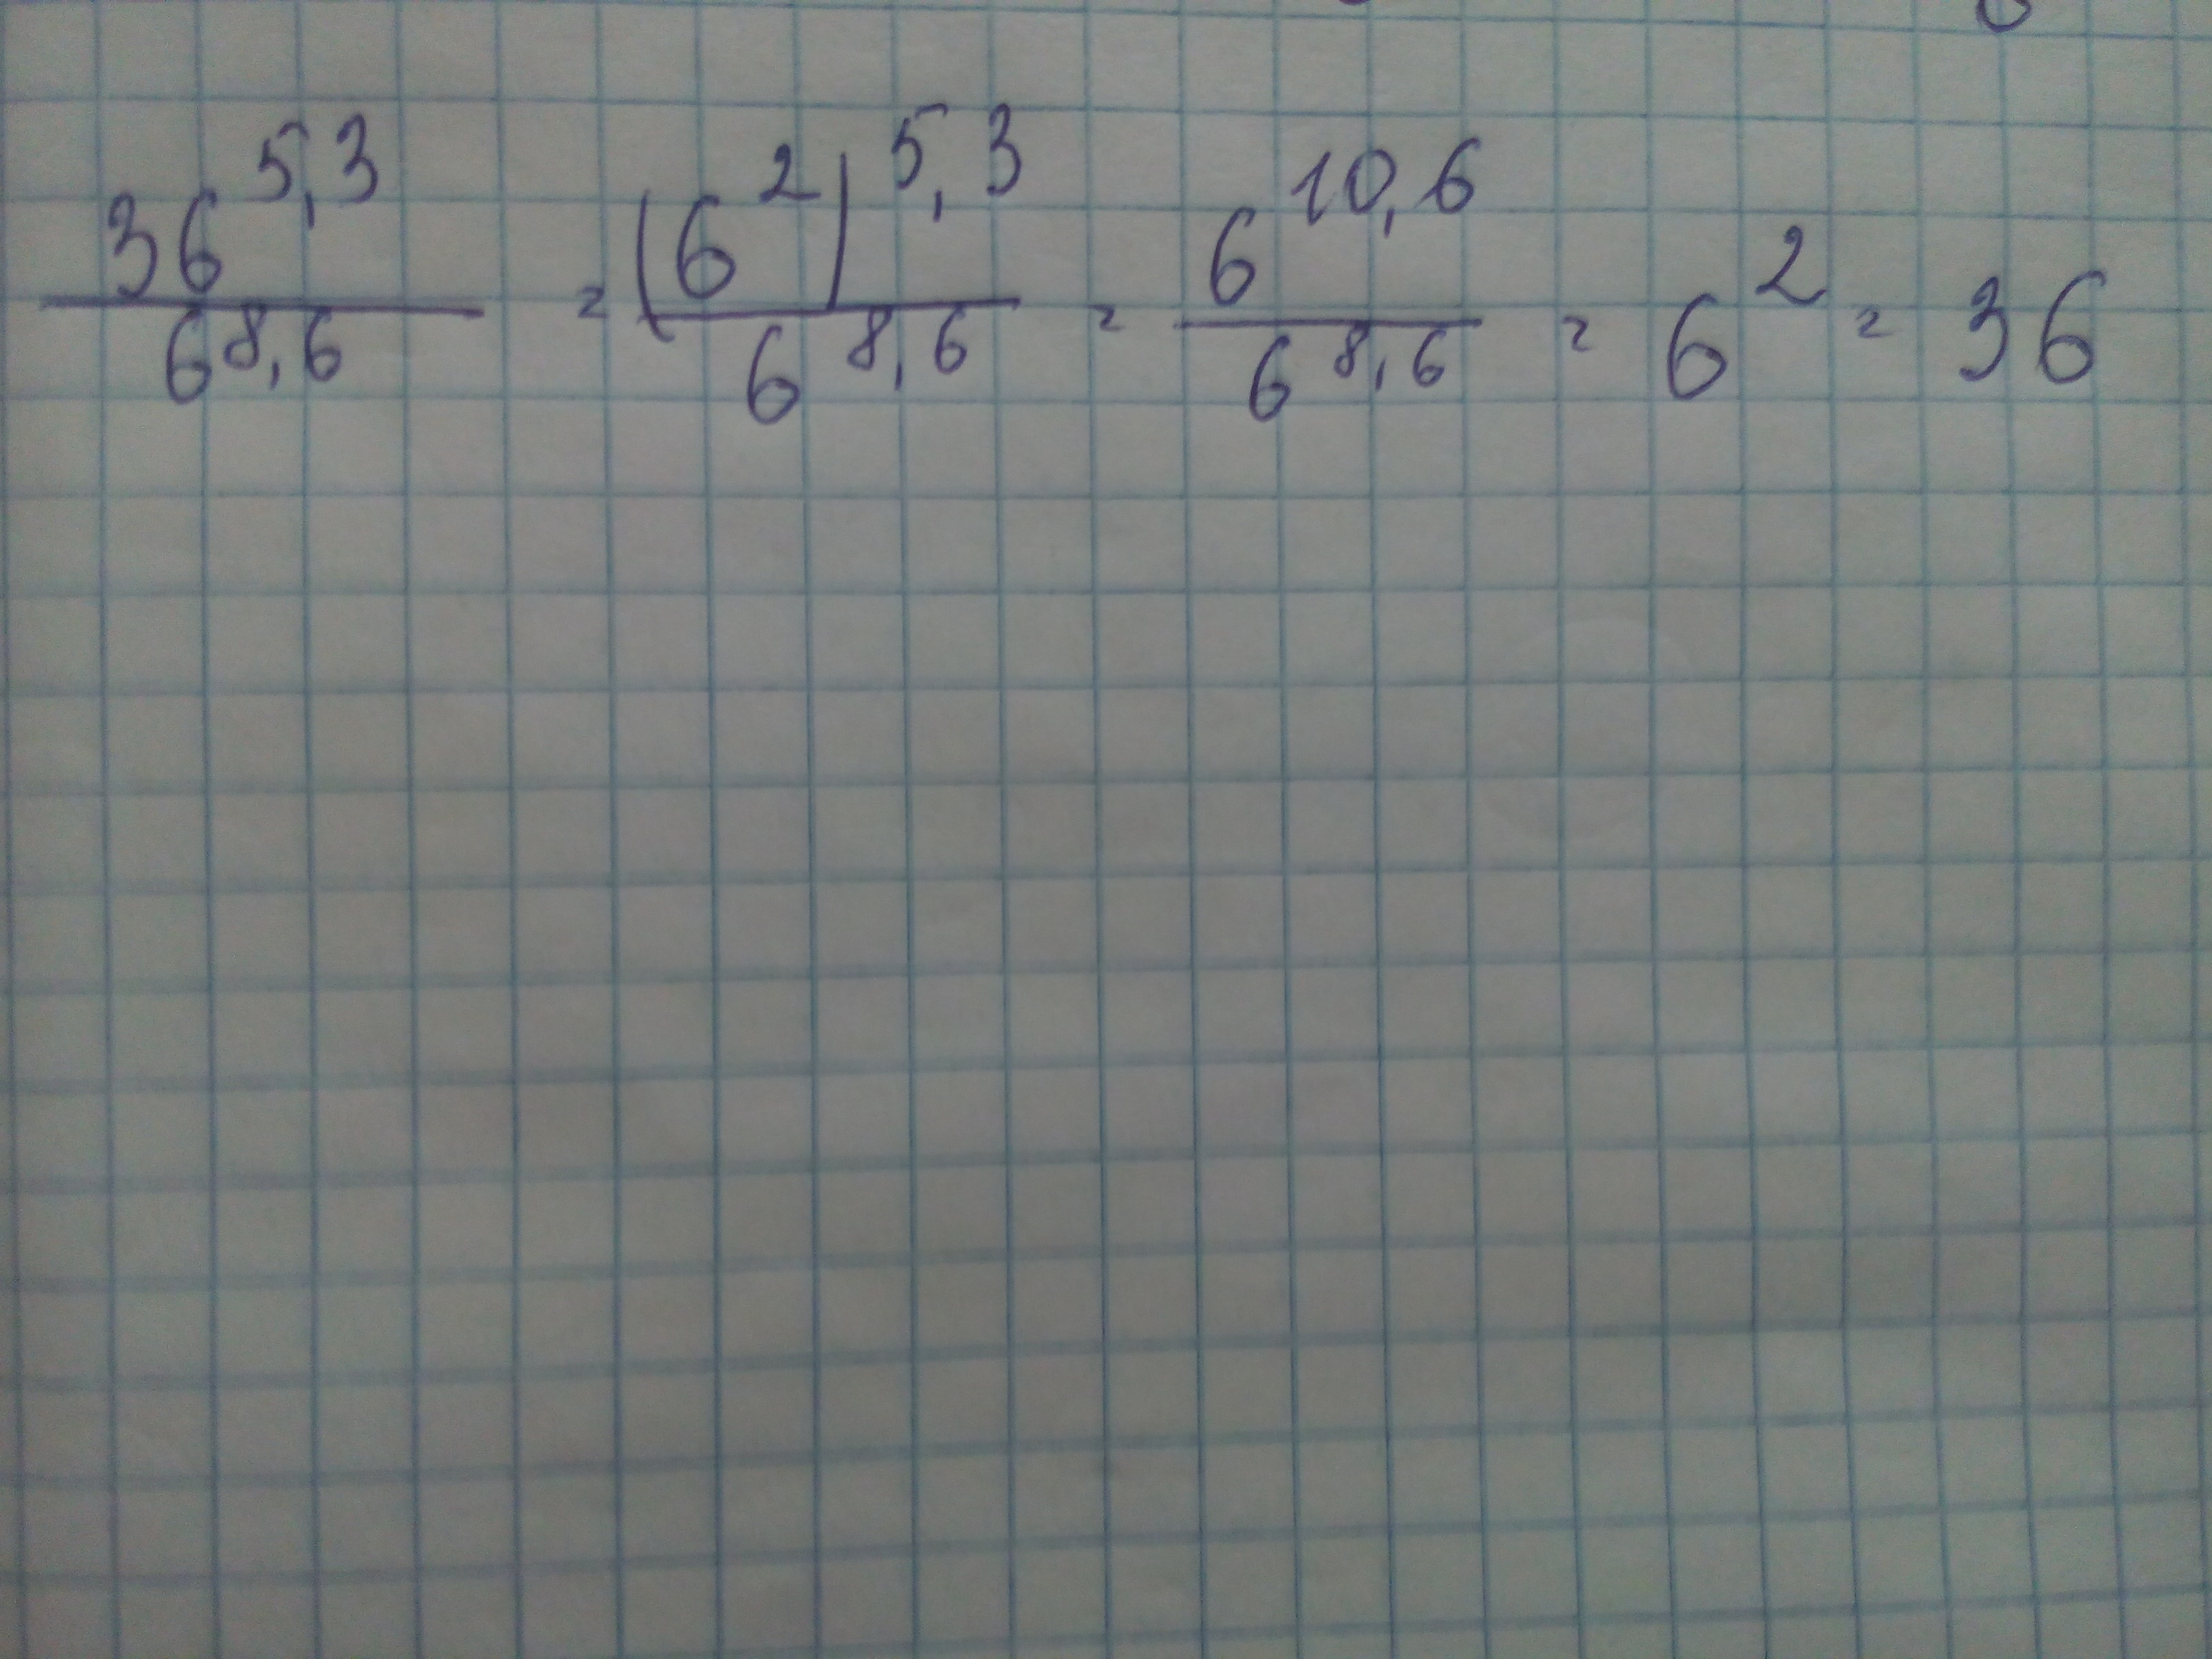 36^5,3 / 6^8,6 = (6^2)^5,3 / 6^8,6 = 6^10,6 / 6^8,6 = 6^2 = 36